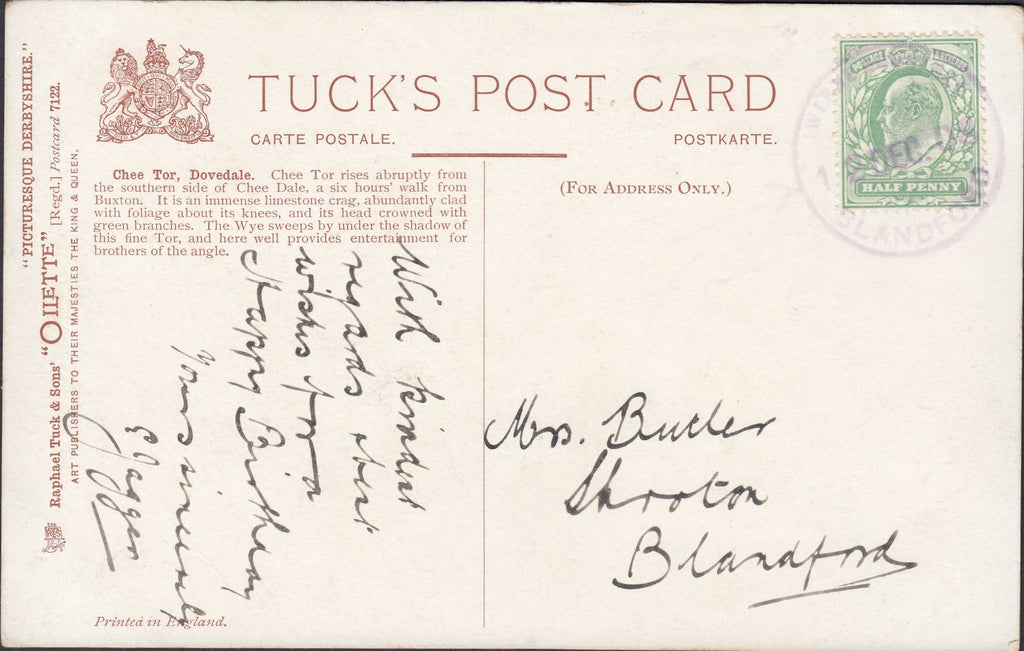 "PICTURESQUE DERBYSHIRE."
Raphael Tuck & Sons' "OILETTE" [Regd.] Postcard 7122.
ART PUBLISHERS TO THEIR MAJESTIES THE KING & QUEEN.
TUCK'S POST CARD
CARTE POSTALE.
POSTKARTE.
Chee Tor, Dovedale. Chee Tor rises abruptly from
the southern side of Chee Dale, a six hours' walk from
Buxton. It is an immense limestone crag, abundantly clad
with foliage about its knees, and its head crowned with
green branches. The Wye sweeps by under the shadow of
this fine Tor, and here well provides entertainment for
brothers of the angle.
With kindest
regards & best
wishes for a
Happy Birthday
Yours sincerely
Jagger
Printed in England.
(FOR ADDRESS ONLY.)
POSTAGE REVENUE
HALF PENNY
BLANDFORD
Mrs. Butler
Shroton
Blandford